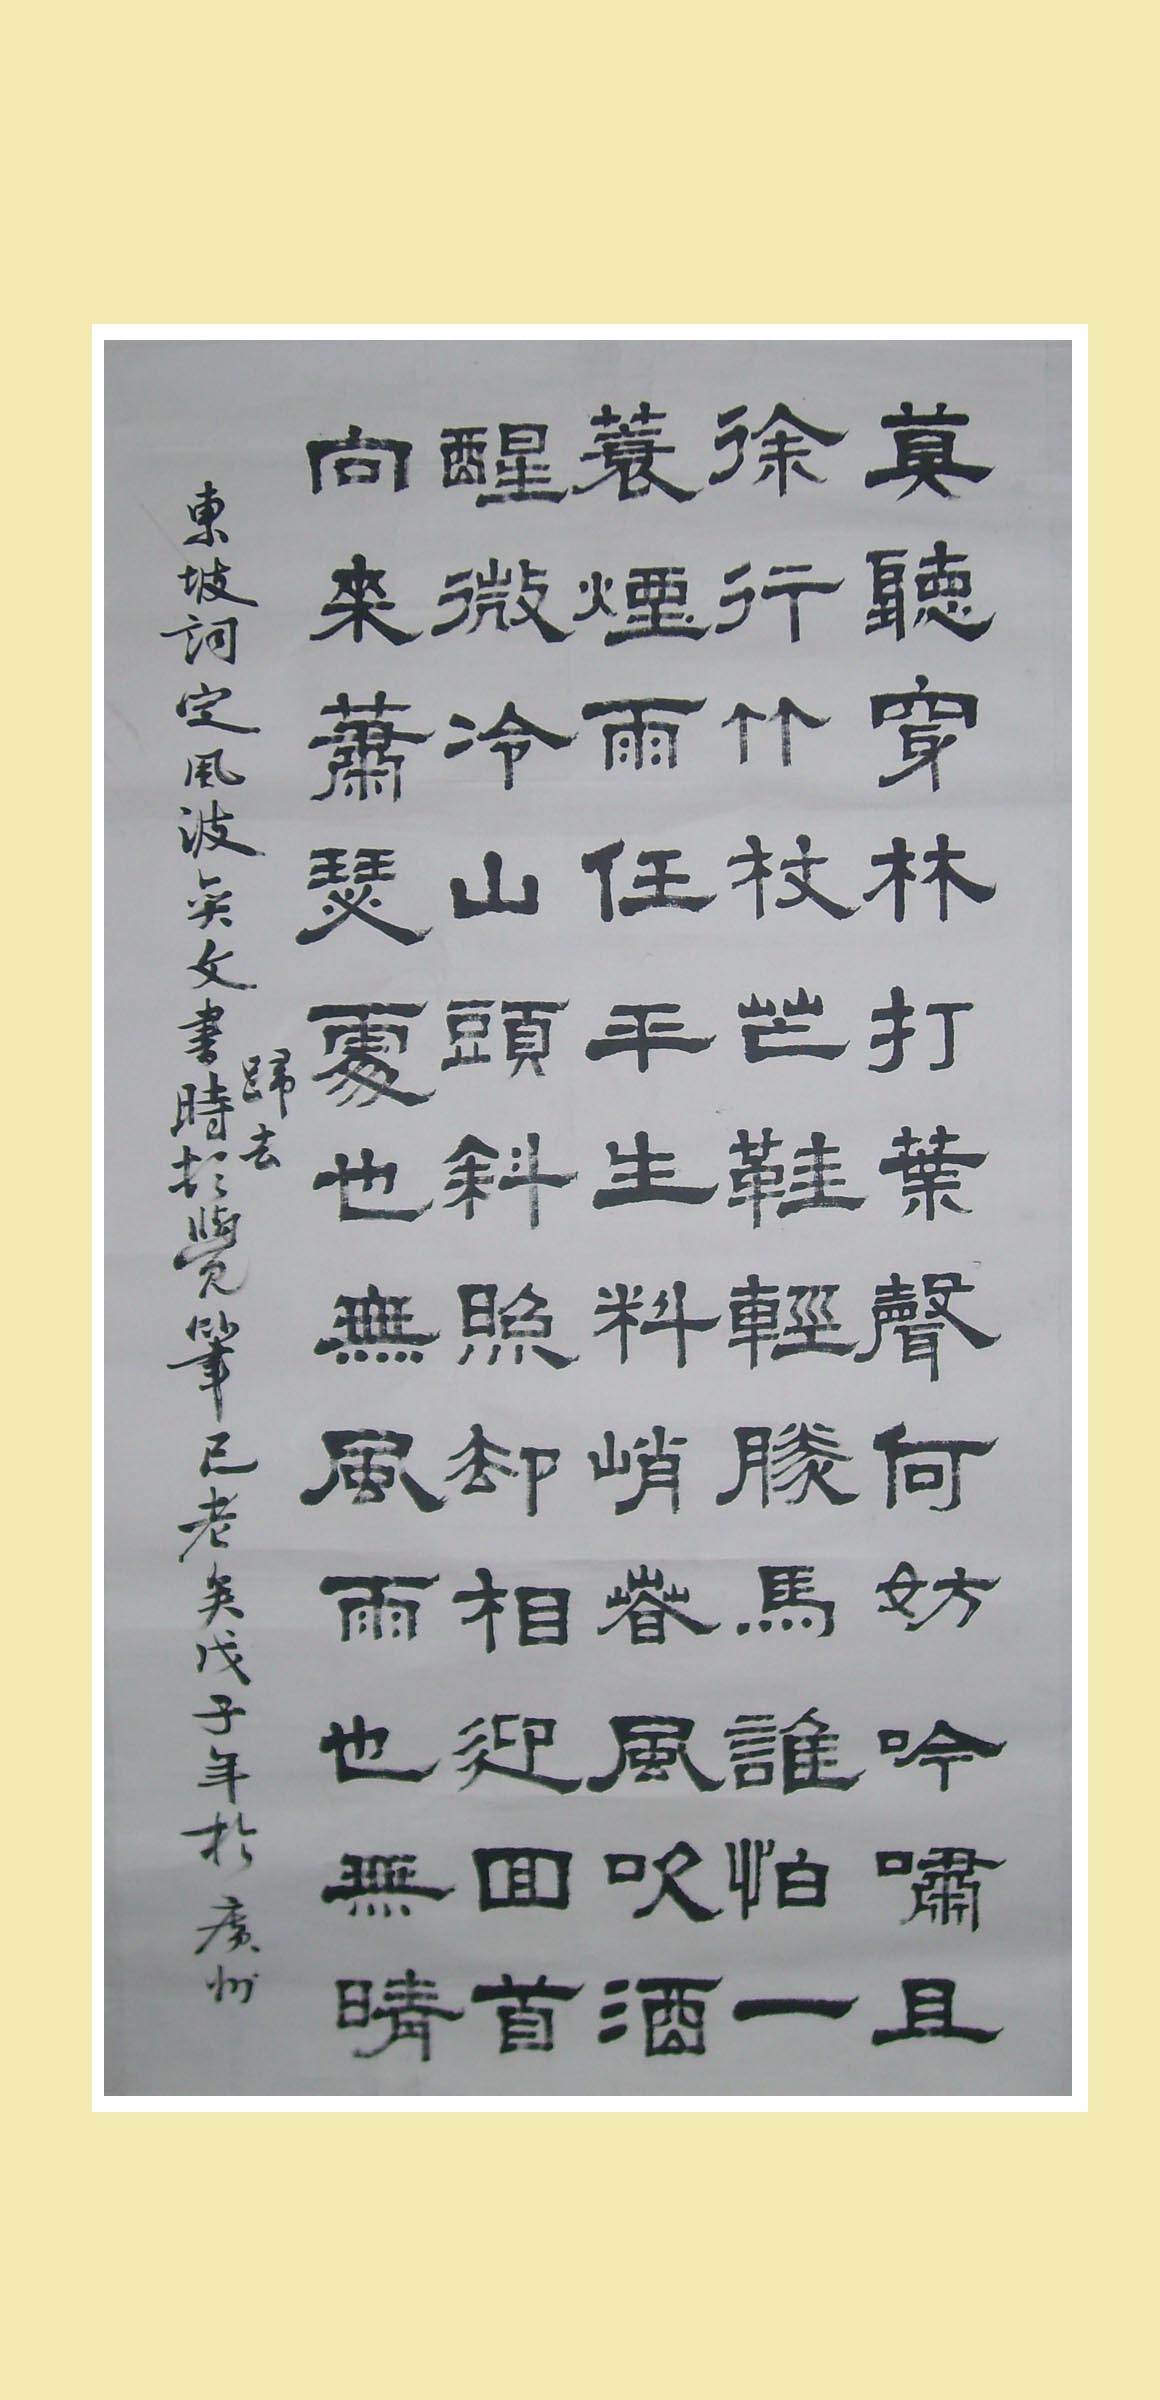 莫聽穿林打葉聲何妨吟嘯且
徐行竹杖芒鞋輕勝馬誰怕一
蓑煙雨任平生料峭春風吹酒
醒微冷山頭斜照却相迎回首
向来蕭瑟處也無風雨也無晴
歸去
東坡詞定風波奕文書時於覺筆已老矣戊子年於廣州